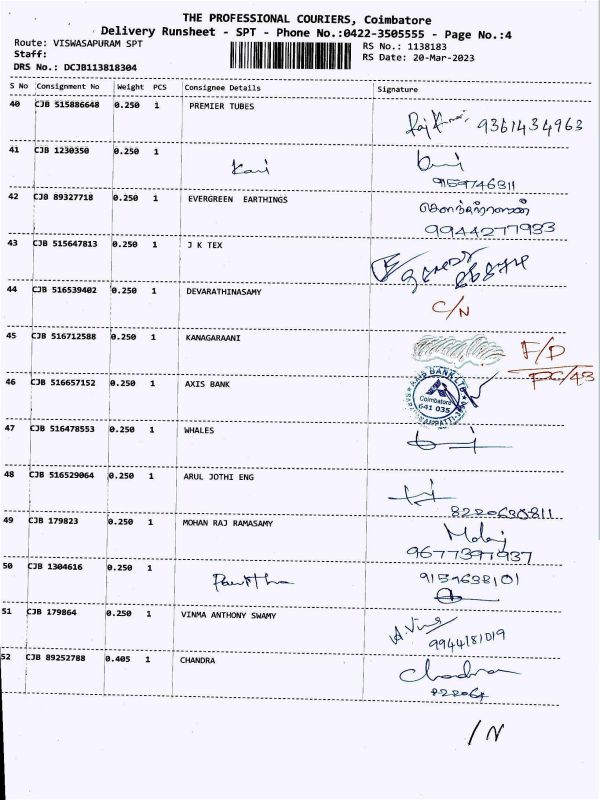 THE PROFESSIONAL COURIERS, Coimbatore
Delivery Runsheet - SPT - Phone No.:0422-3505555 - Page No.:4
Route: VISWASAPURAM SPT
RS No.: 1138183
Staff:
RS Date: 20-Mar-2023
DRS No.: DCJB113818304
S No Consignment No Weight PCS Consignee Details Signature
40 CJB 515886648 0.250 1 PREMIER TUBES
9361434963
41 CJB 1230350 0.250 1
Kavi
9159746311
42 CJB 89327718 0.250 1 EVERGREEN EARTHINGS
9944277933
43 CJB 515647813 0.250 1 J K TEX
44 CJB 516539402 0.250 1 DEVARATHINASAMY
C/N
45 CJB 516712588 0.250 1 KANAGARAANI
F/D
46 CJB 516657152 0.250 1 AXIS BANK
AXIS BANK LTD
Coimbatore
641 035
47 CJB 516478553 0.250 1 WHALES
48 CJB 516529064 0.250 1 ARUL JOTHI ENG
8220630811
49 CJB 179823 0.250 1 MOHAN RAJ RAMASAMY
9677397937
50 CJB 1304616 0.250 1
9159638101
51 CJB 179864 0.250 1 VINMA ANTHONY SWAMY
9944181019
52 CJB 89252788 0.405 1 CHANDRA
Chandra
822064
/N